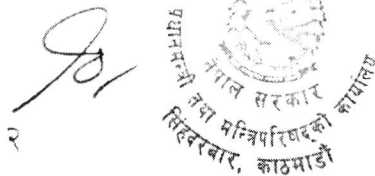 नेपाल सरकार
प्रधानमन्त्री तथा मन्त्रिपरिषद्को कार्यालय
सिंहदरबार, काठमाडौं
२